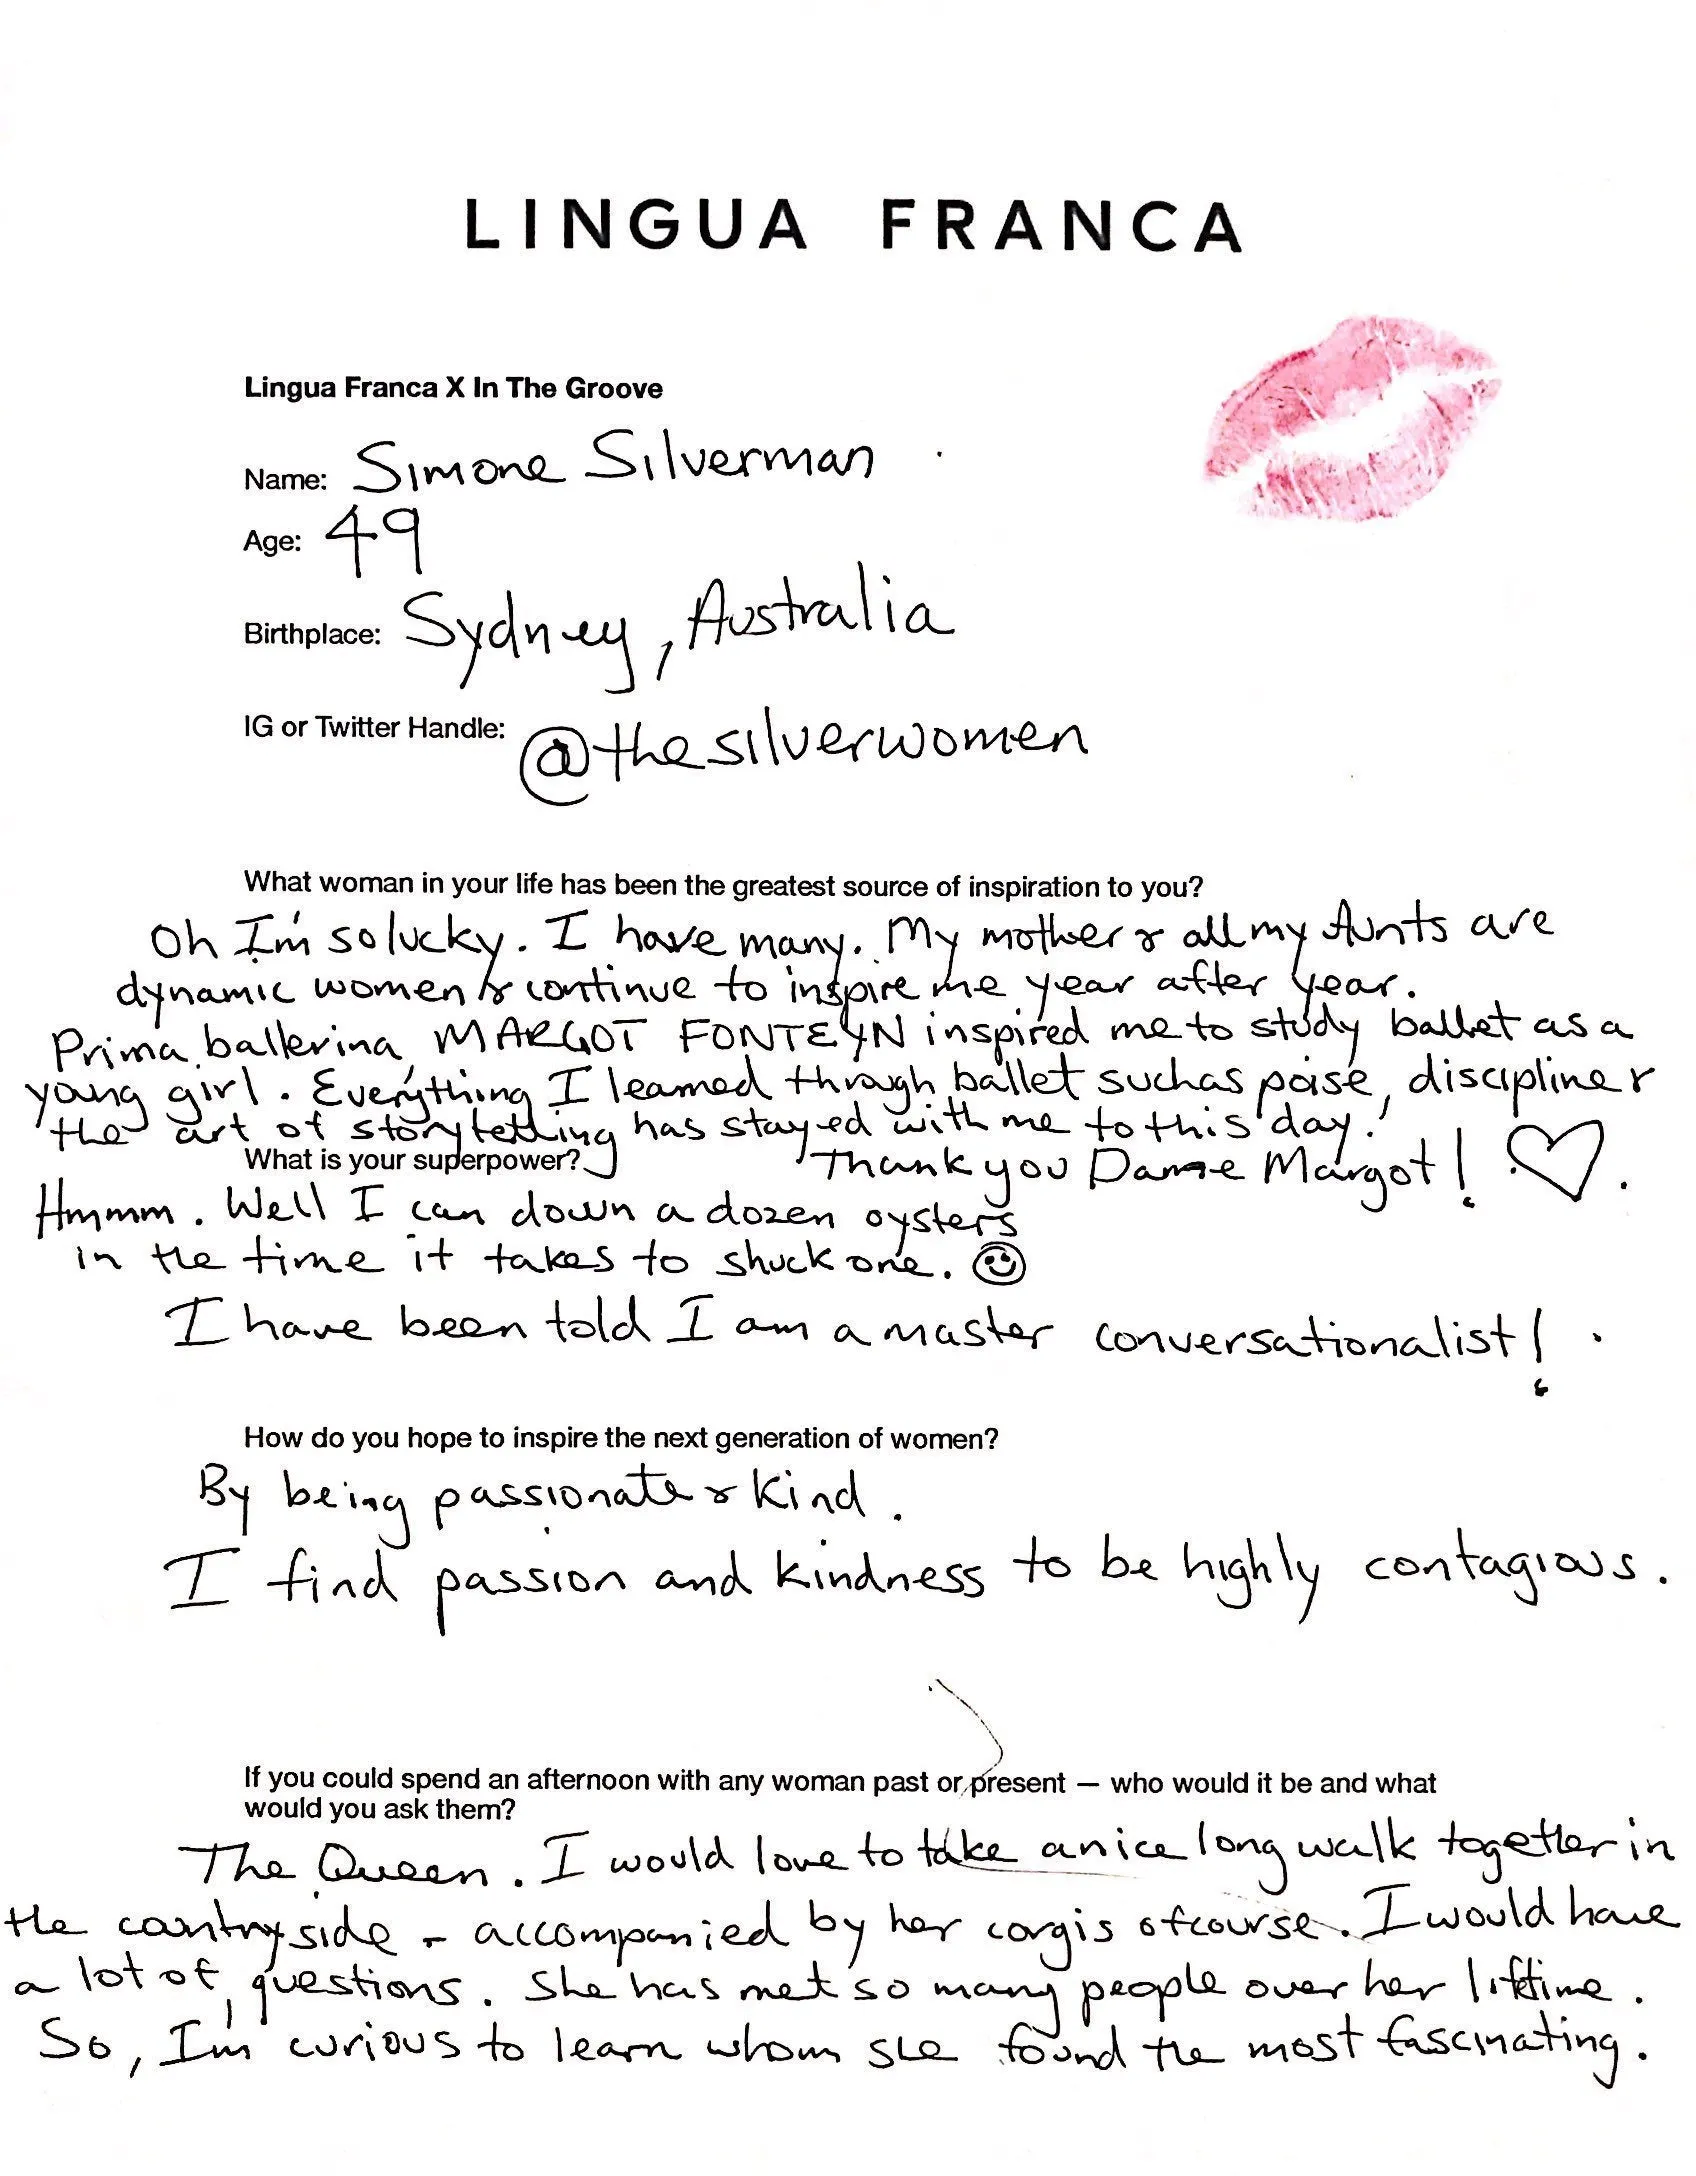 LINGUA FRANCA
Lingua Franca X In The Groove
Name: Simone Silverman
Age: 49
Birthplace: Sydney, Australia
IG or Twitter Handle: @thesilverwomen
What woman in your life has been the greatest source of inspiration to you?
Oh I'm so lucky. I have many. My mother & all my Aunts are
dynamic women & continue to inspire me year after year.
Prima ballerina, MARGOT FONTEYN inspired me to study ballet as a
young girl. Everything I learned through ballet such as poise, discipline &
the art of storytelling has stayed with me to this day!
Thank you Dame Margot!
What is your superpower?
Hmmm. Well I can down a dozen oysters
in the time it takes to shuck one.
I have been told I am a master conversationalist!
How do you hope to inspire the next generation of women?
By being passionate & kind.
I find passion and kindness to be highly contagious.
If you could spend an afternoon with any woman past or present — who would it be and what
would you ask them?
The Queen. I would love to take a nice long walk together in
the countryside - accompanied by her corgis ofcourse. I would have
a lot of questions. She has met so many people over her lifetime.
So, I'm curious to learn whom she found the most fascinating.